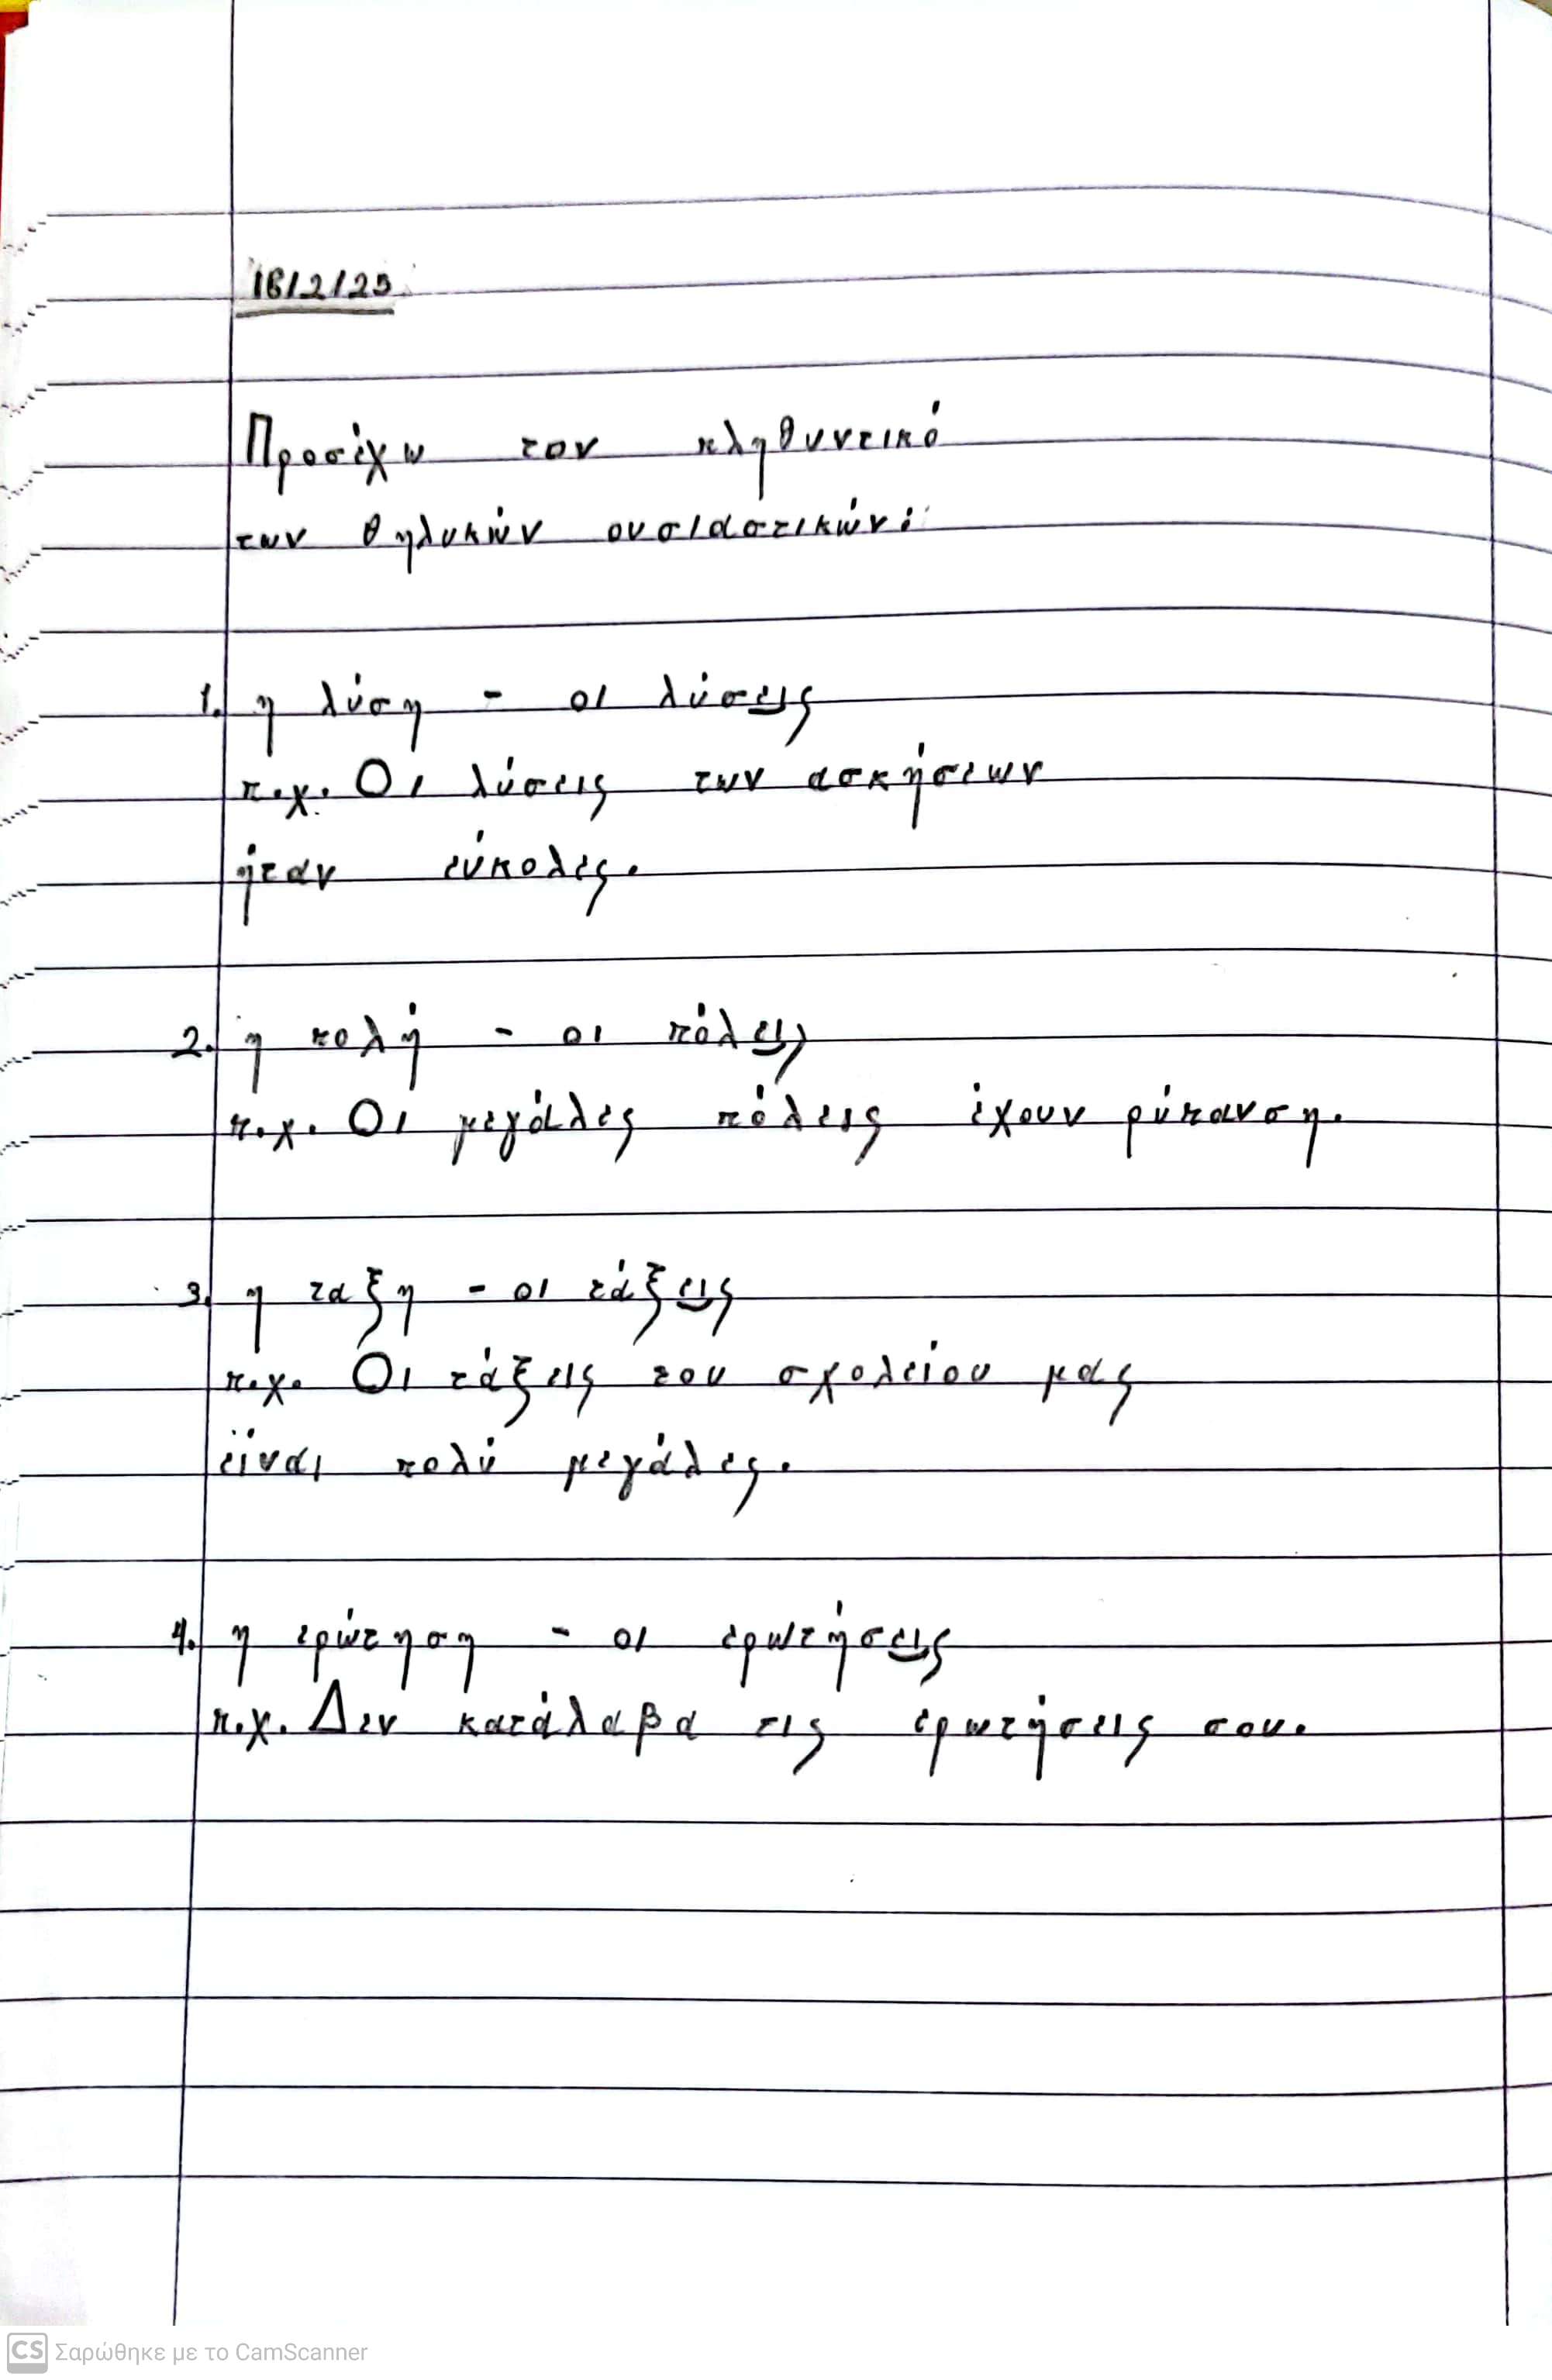 18/2/25
Προσέχω τον πληθυντικό
των θηλυκών ουσιαστικών:
1. η λύση - οι λύσεις
π.χ. Οι λύσεις των ασκήσεων
ήταν εύκολες.
2. η πολή - οι πόλεις
π.χ. Οι μεγάλες πόλεις έχουν ρύπανση.
3. η ταξη - οι τάξεις
π.χ. Οι τάξεις του σχολείου μας
είναι πολύ μεγάλες.
4. η ερώτηση - οι ερωτήσεις
π.χ. Δεν κατάλαβα τις ερωτήσεις σου.
CS Σαρώθηκε με το CamScanner